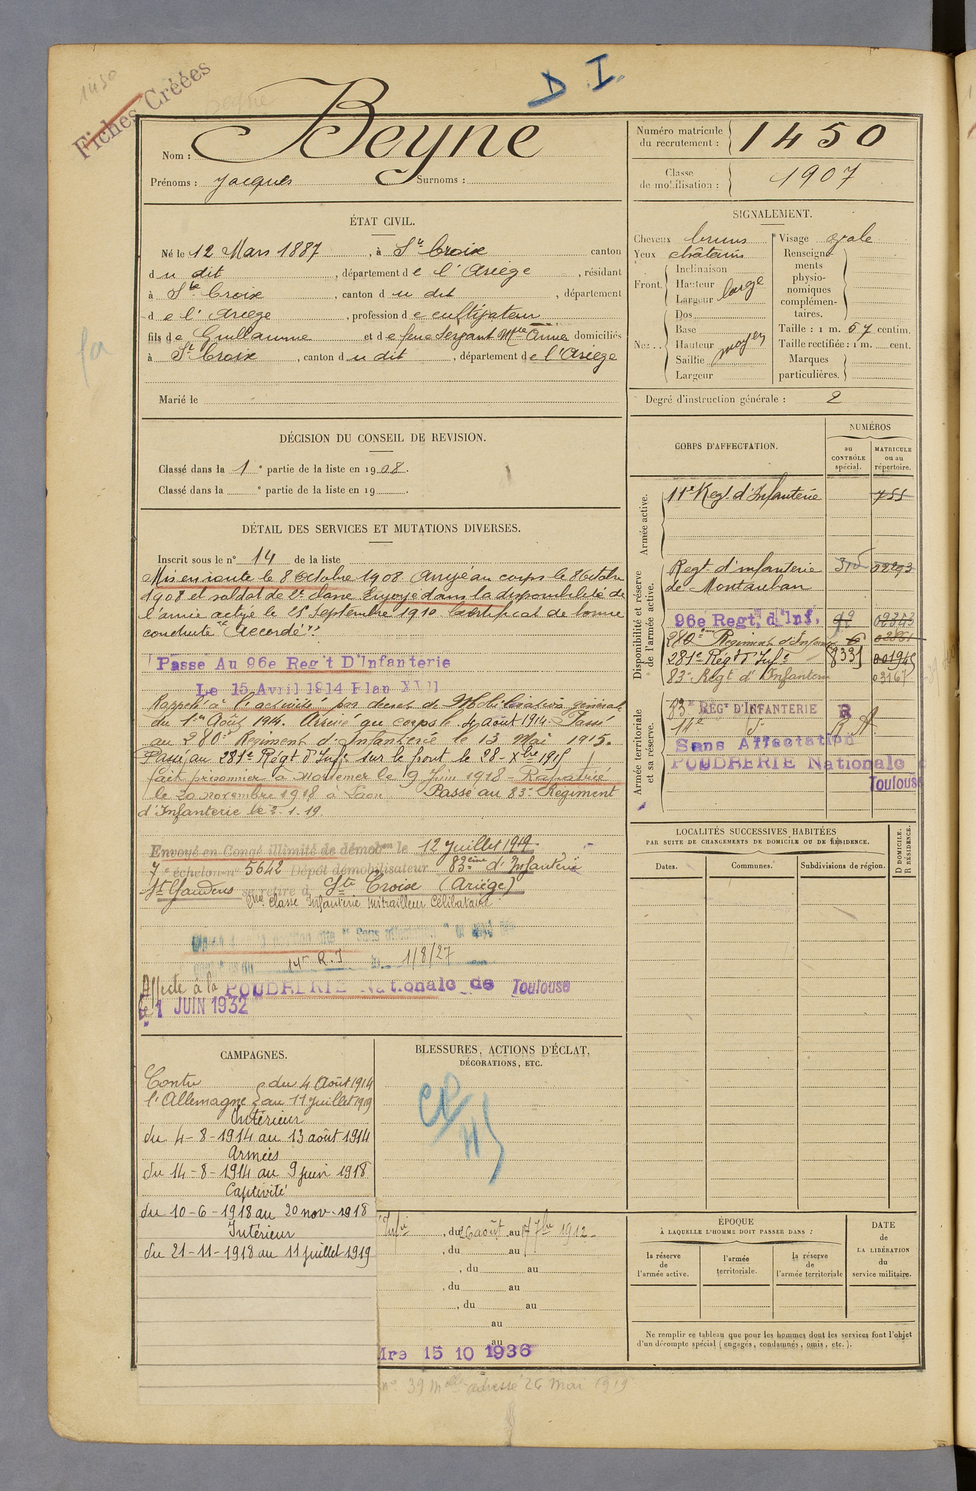 1450
Fiches Créées
Beyne
D I.
Nom : Beyne
Prénoms : Jacques Surnoms :
Numéro matricule du recrutement : 1450
Classe de mobilisation : 1907
ÉTAT CIVIL.
Né le 12 Mars 1887, à Ste Croix canton
du dit, département de l'Ariège, résidant
à Ste Croix, canton du dit, département
de l'Ariège, profession de cultivateur
fils de Guillaume et de feue Sergant Mie Anne domiciliés
à Ste Croix, canton du dit, département de l'Ariège
Marié le
SIGNALEMENT.
Cheveux bruns
Yeux châtains
Front
Inclinaison
Hauteur
Largeur
large
Nez
Dos
Base
Hauteur
Saillie
Largeur
moyen
Visage ovale
Renseignements physionomiques complémentaires.
Taille : 1 m. 67 centim.
Taille rectifiée : 1 m. cent.
Marques particulières.
Degré d'instruction générale : 2
DÉCISION DU CONSEIL DE REVISION.
Classé dans la 1e partie de la liste en 1908.
Classé dans la e partie de la liste en 19 .
DÉTAIL DES SERVICES ET MUTATIONS DIVERSES.
Inscrit sous le n° 14 de la liste
Mis en route le 8 Octobre 1908 Arrivé au corps le 8 Octobre
1908 et soldat de 2e classe Envoyé dans la disponibilité de
l'armée active le 25 Septembre 1910 Certificat de bonne
conduite "Accordé".
Passe Au 96e Reg't D'Infanterie
Le 15 Avril 1914 Plan XVII
Rappelé à l'activité par décret de Mobilisation générale
du 1er Août 1914. Arrivé au corps le 4 août 1914. Passé
au 280e Régiment d'Infanterie le 13 Mai 1915.
Passé au 281e Régt d'Infie sur le front le 28-Xbre 1915
fait prisonnier à le 9 Juin 1918 - Rapatrié
le 20 novembre 1918 à Laon Passé au 83e Régiment
d'Infanterie le 2.1.19.
Envoyé en Congé illimité de démobon le 12 Juillet 1919
7e échelon n° 5642 Dépôt démobilisateur 83ème d'Infanterie
St Gaudens se retire à Ste Croix (Ariège)
classe Infanterie Mitrailleur Célibataire
"Sans affectation"
14e R.I 1/8/27
Affecté à la POUDRERIE Nationale de Toulouse
le 1 JUIN 1932
CORPS D'AFFECTATION.
NUMÉROS
au CONTRÔLE spécial.
MATRICULE ou au répertoire.
Armée active.
11e Regt d'Infanterie 755
Disponibilité et réserve de l'armée active.
Regt d'infanterie
de Montauban
96e Regt, d'Inf.
280ème Régiment d'Infanterie
281e Régt d'Infie 8335 001945
83e Régt d'Infanterie 03167
Armée territoriale et sa réserve.
83e RÉGT D'INFANTERIE R
14e d° R.A.
Sans Affectation
POUDRERIE Nationale
Toulouse
LOCALITÉS SUCCESSIVES HABITÉES
PAR SUITE DE CHANGEMENTS DE DOMICILE OU DE RÉSIDENCE.
Dates.
Communes.
Subdivisions de région.
D DOMICILE. R RÉSIDENCE.
CAMPAGNES.
Contre l'Allemagne
du 4 Août 1914
au 11 juillet 1919
Intérieur
du 4-8-1914 au 13 août 1914
Armées
du 14-8-1914 au 9 juin 1918
Captivité
du 10-6-1918 au 20 nov-1918
Intérieur
du 21-11-1918 au 11 juillet 1919
BLESSURES, ACTIONS D'ÉCLAT,
DÉCORATIONS, ETC.
, du 26 août au 7bre 1912
, du au
, du au
, du au
, du au
au
au
Mrs 15 10 1936
n° 39 adressé 26 mai 1919
ÉPOQUE
À LAQUELLE L'HOMME DOIT PASSER DANS :
la réserve de l'armée active.
l'armée territoriale.
la réserve de l'armée territoriale
DATE DE LA LIBÉRATION du service militaire.
Ne remplir ce tableau que pour les hommes dont les services font l'objet
d'un décompte spécial (engagés, condamnés, omis, etc.).